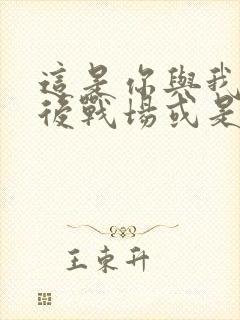 這是你與我
後戰場或是
王東升